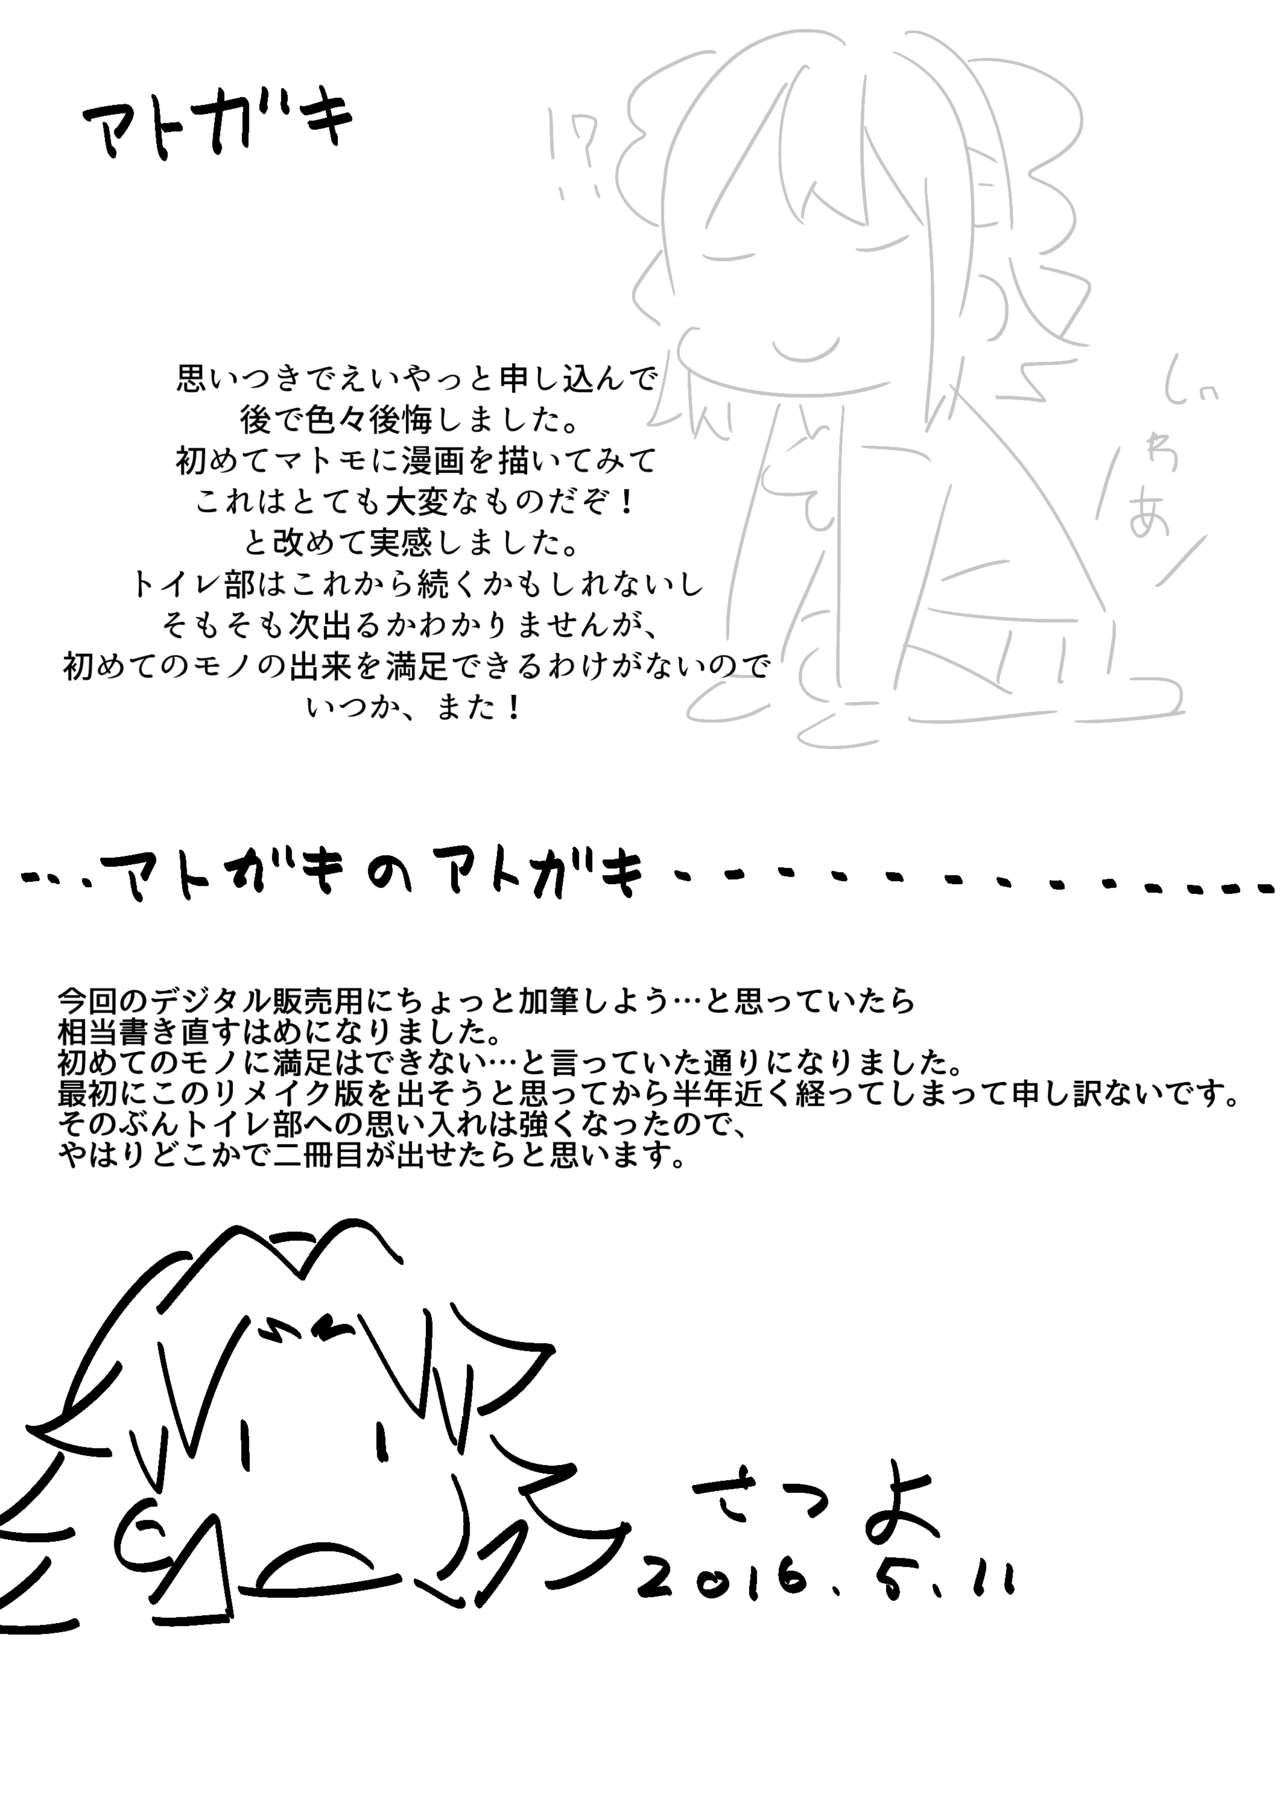 アトガキ
!?
思いつきでえいやっと申し込んで
後で色々後悔しました。
初めてマトモに漫画を描いてみて
これはとても大変なものだぞ！
と改めて実感しました。
トイレ部はこれから続くかもしれないし
そもそも次出るかわかりませんが、
初めてのモノの出来を満足できるわけがないので
いつか、また！
しぃ
やあ
…アトガキのアトガキ
今回のデジタル販売用にちょっと加筆しよう…と思っていたら
相当書き直すはめになりました。
初めてのモノに満足はできない…と言っていた通りになりました。
最初にこのリメイク版を出そうと思ってから半年近く経ってしまって申し訳ないです。
そのぶんトイレ部への思い入れは強くなったので、
やはりどこかで二冊目が出せたらと思います。
さつよ
2016.5.11